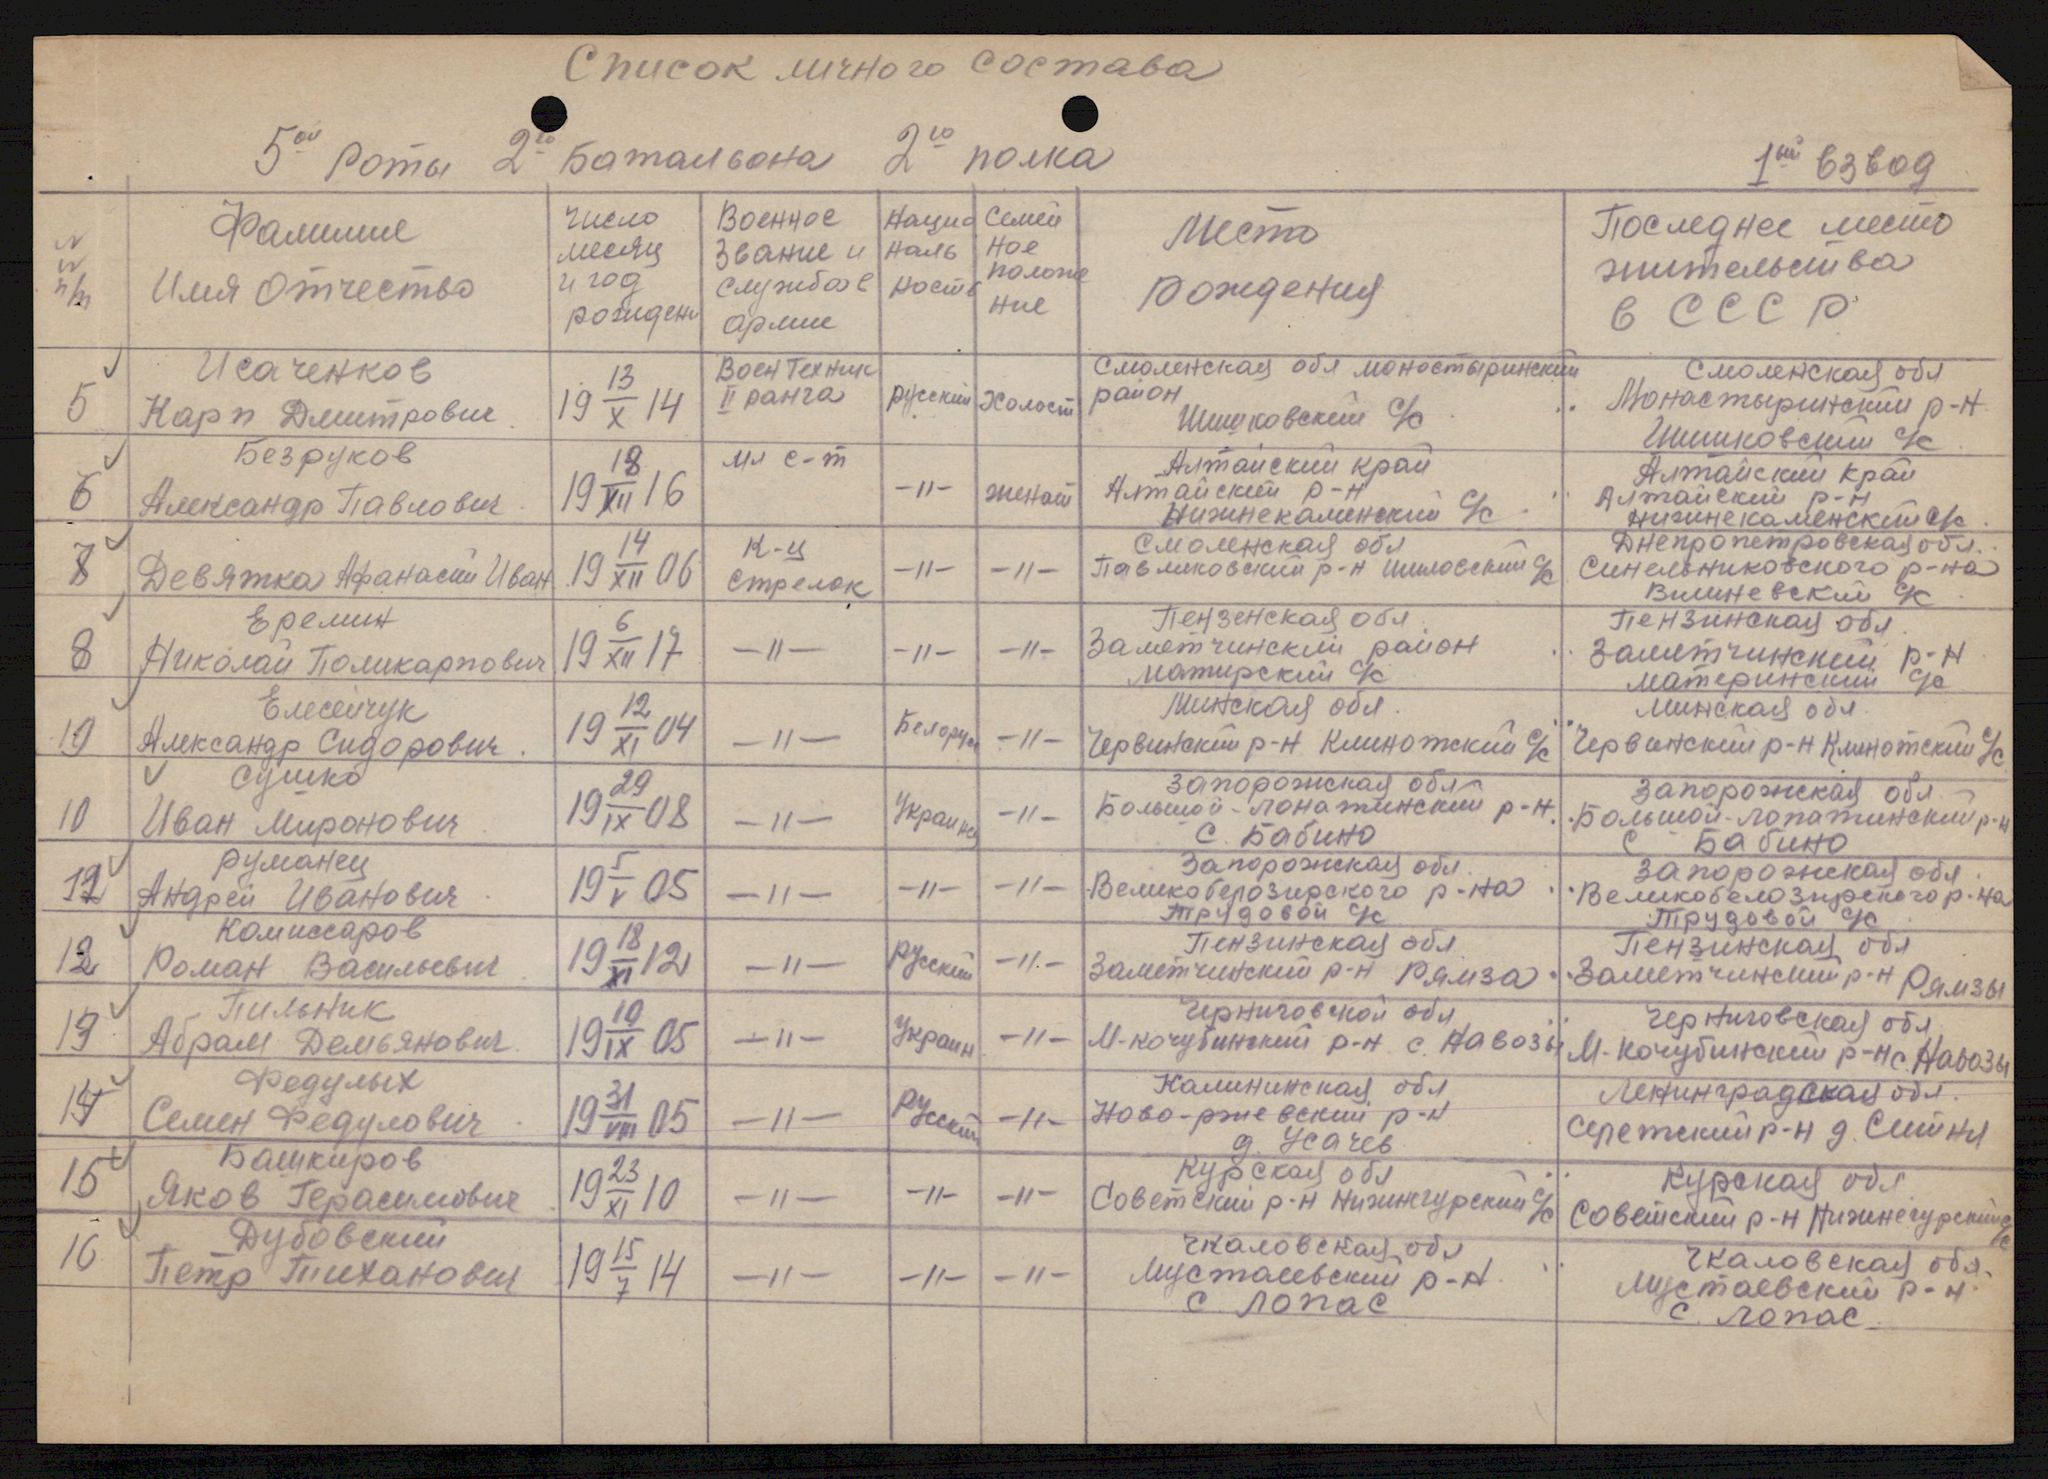 Список личного состава
5ой Роты 2го Батальона 2го полка
1ый взвод
№№ п/п
Фамилие
Имя Отчество
число
месяц
и год
рожден
Военное
звание и
служба в
армие
Нацио
наль
ность
Семей
ное
полож
ние
Место
рождения
Последнее место
жительства
в СССР
5
Исаченков
Карп Дмитрович
19 13/X 14
Воен Техник
II ранга
русский
Холост
Смоленская обл Моностыринский
район
Шишковский с/с
Смоленская обл
Монастыринский р-н
Шишковский с/с
6
Безруков
Александр Павлович
19 18/XII 16
мл с-т
-"-
женат
Алтайский край
Алтайский р-н
Нижнекаменский с/с
Алтайский край
Алтайский р-н
Нижнекаменский с/с
7
Девятка Афанасий Иван
19 14/XII 06
К-ц
стрелок
-"-
-"-
Смоленская обл
Павликовский р-н Шиловский с/с
Днепропетровская обл.
Синельниковского р-на
Вишневский с/с
8
Еремин
Николай Поликарпович
19 6/XII 17
-"-
-"-
-"-
Пензенская обл
Заметчинский район
Матирский с/с
Пензинская обл
Заметчинский р-н
Материнский с/с
Елесейчук
Александр Сидорович
19 12/XI 04
-"-
Белорус
-"-
Минская обл.
Червинский р-н Клинотский с/с
Минская обл
Червинский р-н Клинотский с/с
10
Сушко
Иван Миронович
19 29/IX 08
-"-
Украинец
-"-
Запорожская обл
Большой-лопатинский р-н.
с. Бабино
Запорожская обл
Большой-лопатинский р-н
с Бабино
Руманец
Андрей Иванович
19 5/V 05
-"-
-"-
-"-
Запорожская обл.
Великобелозирского р-на
Трудовой с/с
Запорожская обл.
Великобелозирского р-на
Трудовой с/с
12
Комиссаров
Роман Васильевич
19 18/XI 12
-"-
Русский
-"-
Пензинская обл
Заметчинский р-н Рямза
Пензинская обл
Заметчинский р-н Рямзы
13
Пильник
Абрам Демьянович
19 10/IX 05
-"-
Украин
-"-
Черниговской обл
М-кочубинский р-н с. Навозы
Черниговская обл
М-Кочубинский р-н с. Навозы
14
Федулых
Семен Федулович
19 31/VIII 05
-"-
Русский
-"-
Калининская обл
Ново-ржевский р-н
д. Усачев
Ленинградская обл.
Серетский р-н д. Ситня
15
Башкиров
Яков Герасимович
19 23/XI 10
-"-
-"-
-"-
Курская обл
Советский р-н Нижнегурский с/с
Курская обл
Советский р-н Нижнегурский с/с
16
Дубовский
Петр Тиханович
19 15/7 14
-"-
-"-
-"-
Чкаловская обл
Мустаевский р-н
с. Лопас
Чкаловская обл.
Мустаевский р-н
с. Лопас